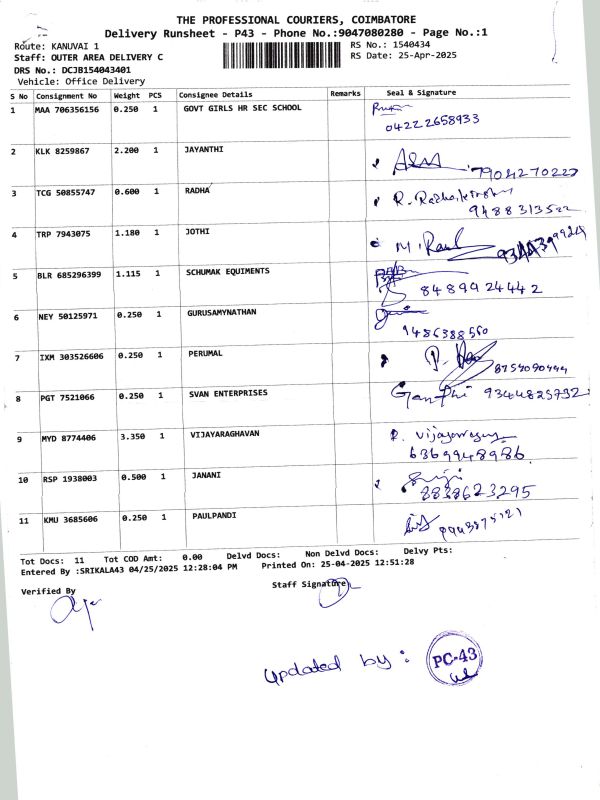 THE PROFESSIONAL COURIERS, COIMBATORE
Delivery Runsheet - P43 - Phone No.:9047080280 - Page No.:1
Route: KANUVAI 1
RS No.: 1540434
Staff: OUTER AREA DELIVERY C
RS Date: 25-Apr-2025
DRS No.: DCJB154043401
Vehicle: Office Delivery
S No Consignment No Weight PCS Consignee Details Remarks Seal & Signature
1 MAA 706356156 0.250 1 GOVT GIRLS HR SEC SCHOOL
04222658933
2 KLK 8259867 2.200 1 JAYANTHI
7904270227
3 TCG 50855747 0.600 1 RADHA
4 TRP 7943075 1.180 1 JOTHI
5 BLR 685296399 1.115 1 SCHUMAK EQUIMENTS
8489924442
6 NEY 50125971 0.250 1 GURUSAMYNATHAN
9486388560
7 IXM 303526606 0.250 1 PERUMAL
8 PGT 7521066 0.250 1 SVAN ENTERPRISES
9344825732
9 MYD 8774406 3.350 1 VIJAYARAGHAVAN
6369948986
10 RSP 1938003 0.500 1 JANANI
8838623295
11 KMU 3685606 0.250 1 PAULPANDI
Tot Docs: 11 Tot COD Amt: 0.00 Delvd Docs: Non Delvd Docs: Delvy Pts:
Entered By :SRIKALA43 04/25/2025 12:28:04 PM Printed On: 25-04-2025 12:51:28
Verified By Staff Signature
updated by : PC-43